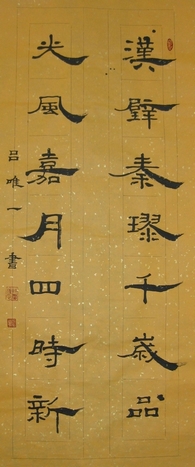 漢璧秦璆千歲品
光風嘉月四時新
吕唯一書